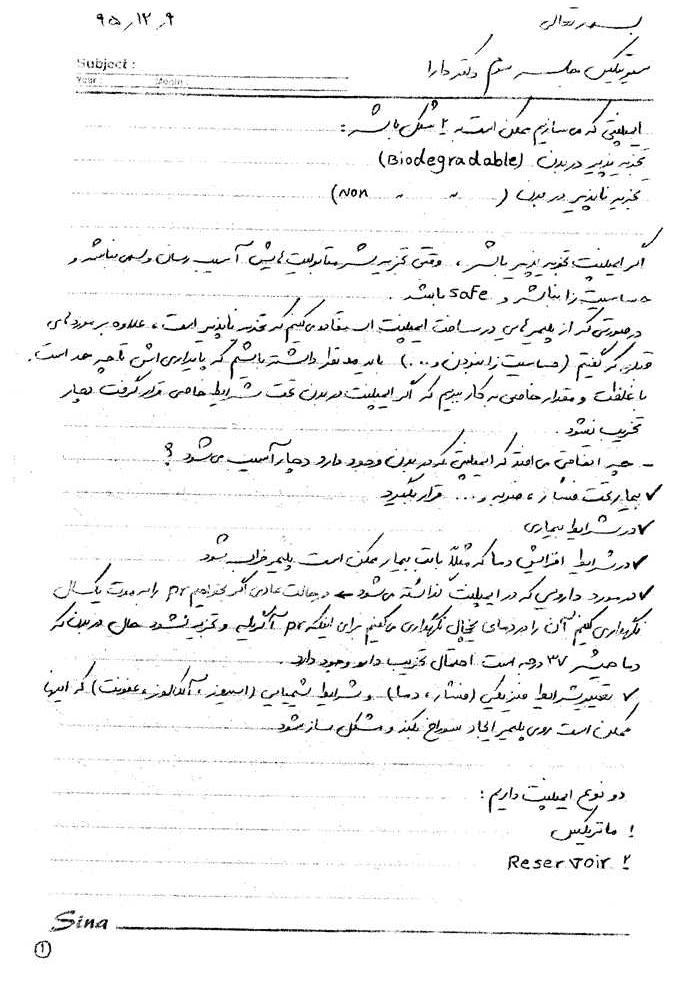 بسمه تعالی
۹۵٫۱۲٫۹
سینتیکس جلسه سوم دکتر دارا
Subject :
Year : Month :
ایمپلنتی که می سازیم ممکن است به ۲ شکل باشد :
تجزیه پذیر در بدن (Biodegradable)
تجزیه ناپذیر در بدن (Non " ")
اگر ایمپلنت تجزیه پذیر باشد ، وقتی تجزیه بشه متابولیت هایش آسیب رسان و سمی نباشد و
حساسیت زا نباشد و safe باشد .
در صورتی که از پلیمرهایی در ساخت ایمپلنت استفاده می کنیم که تجزیه ناپذیر است ، علاوه بر موردهای
قبلی که گفتیم (حساسیت زا نبودن و ...) باید مد نظر داشته باشیم که پایداری اش تا چه حد است .
با غلظت و مقدار خاصی به کار ببریم که اگر ایمپلنت در بدن تحت شرایط خاصی قرار گرفت دچار
تخریب نشود .
- چه اتفاقی می افتد که ایمپلنتی که در بدن وجود دارد دچار آسیب می شود ؟
✓ بیمار تحت فشار ، ضربه و ... قرار بگیرد
✓ در شرایط بیماری
✓ در شرایط افزایش دما که مثلاً بافت بیمار ممکن است پلیمر خراب شود
✓ در مورد دارویی که در ایمپلنت گذاشته می شود ← در حالت عادی اگر بخواهیم pr را به مدت یکسال
نگهداری کنیم آن را در دمای یخچال نگهداری می کنیم برای اینکه pr آگریگه و تجزیه نشود حال در بدن که
دما بیشتر ۳۷ درجه است احتمال تخریب دارو وجود دارد .
✓ تغییر شرایط فیزیکی (فشار ، دما) و شرایط شیمیایی (اسیدوز ، آلکالوز ، عفونت) که اینها
ممکن است روی پلیمر ایجاد سوراخ بکند و مشکل ساز شود
دو نوع ایمپلنت داریم :
۱. ماتریکس
۲. Reservoir
Sina
۱